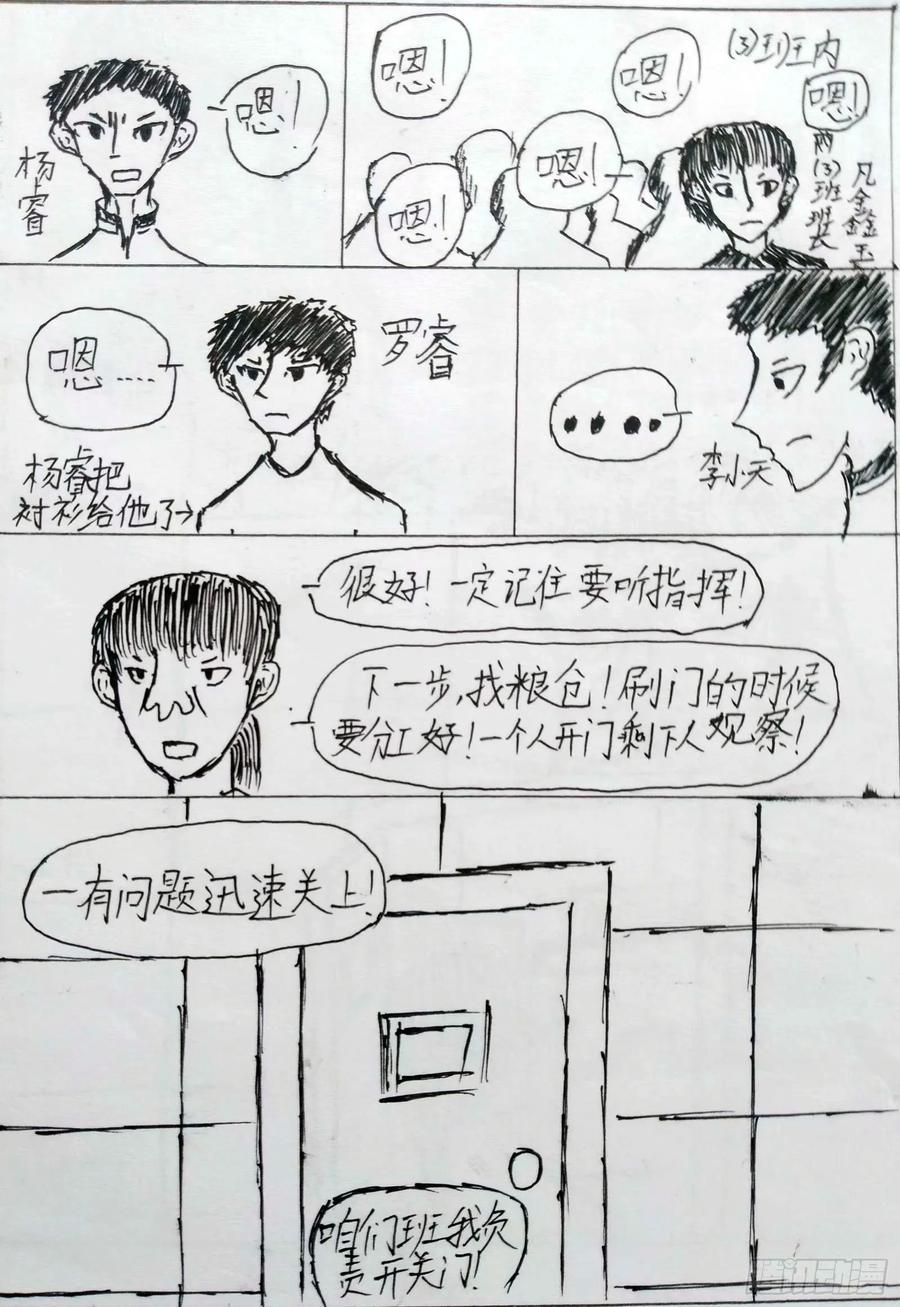 嗯！
杨睿
(3)班内
嗯！
嗯！
嗯！
嗯！
嗯！
两(3)班班长
凡金鑫玉
嗯……
罗睿
杨睿把
衬衫给他了→
李小天
很好！一定记住要听指挥！
下一步，找粮仓！刷门的时候
要分工好！一个人开门剩下人观察！
一有问题迅速关上！
咱们班我负
责开关门！